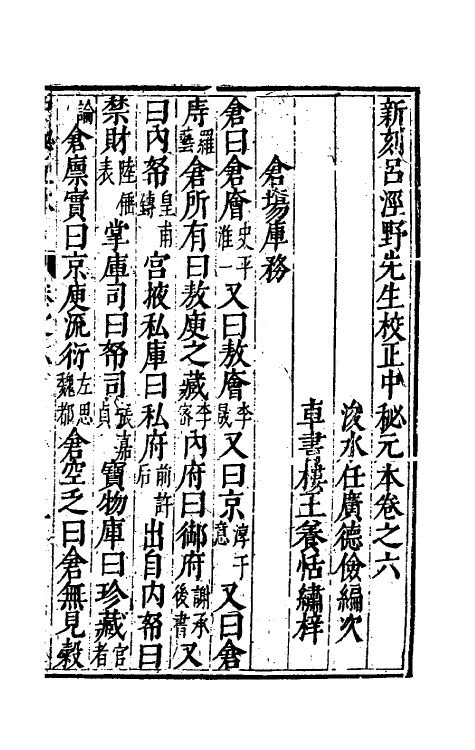 新刻呂涇野先生校正中秘元本卷之六
浚水任廣德儉編次
車書樓王養恬繡梓
倉場庫務
倉曰倉廥史平淮一又曰敖廥李晟又曰京淳于意又曰倉
庤羅藝倉所有曰敖庾之藏李密內府曰御府謝承後書又
曰內帑皇甫鏄宮掖私庫曰私府前許后出自內帑曰
禁財陸俪表掌庫司曰帑司張嘉貞寶物庫曰珍藏官者
論倉廪實曰京庾流衍左思魏都倉空乏曰倉無見榖